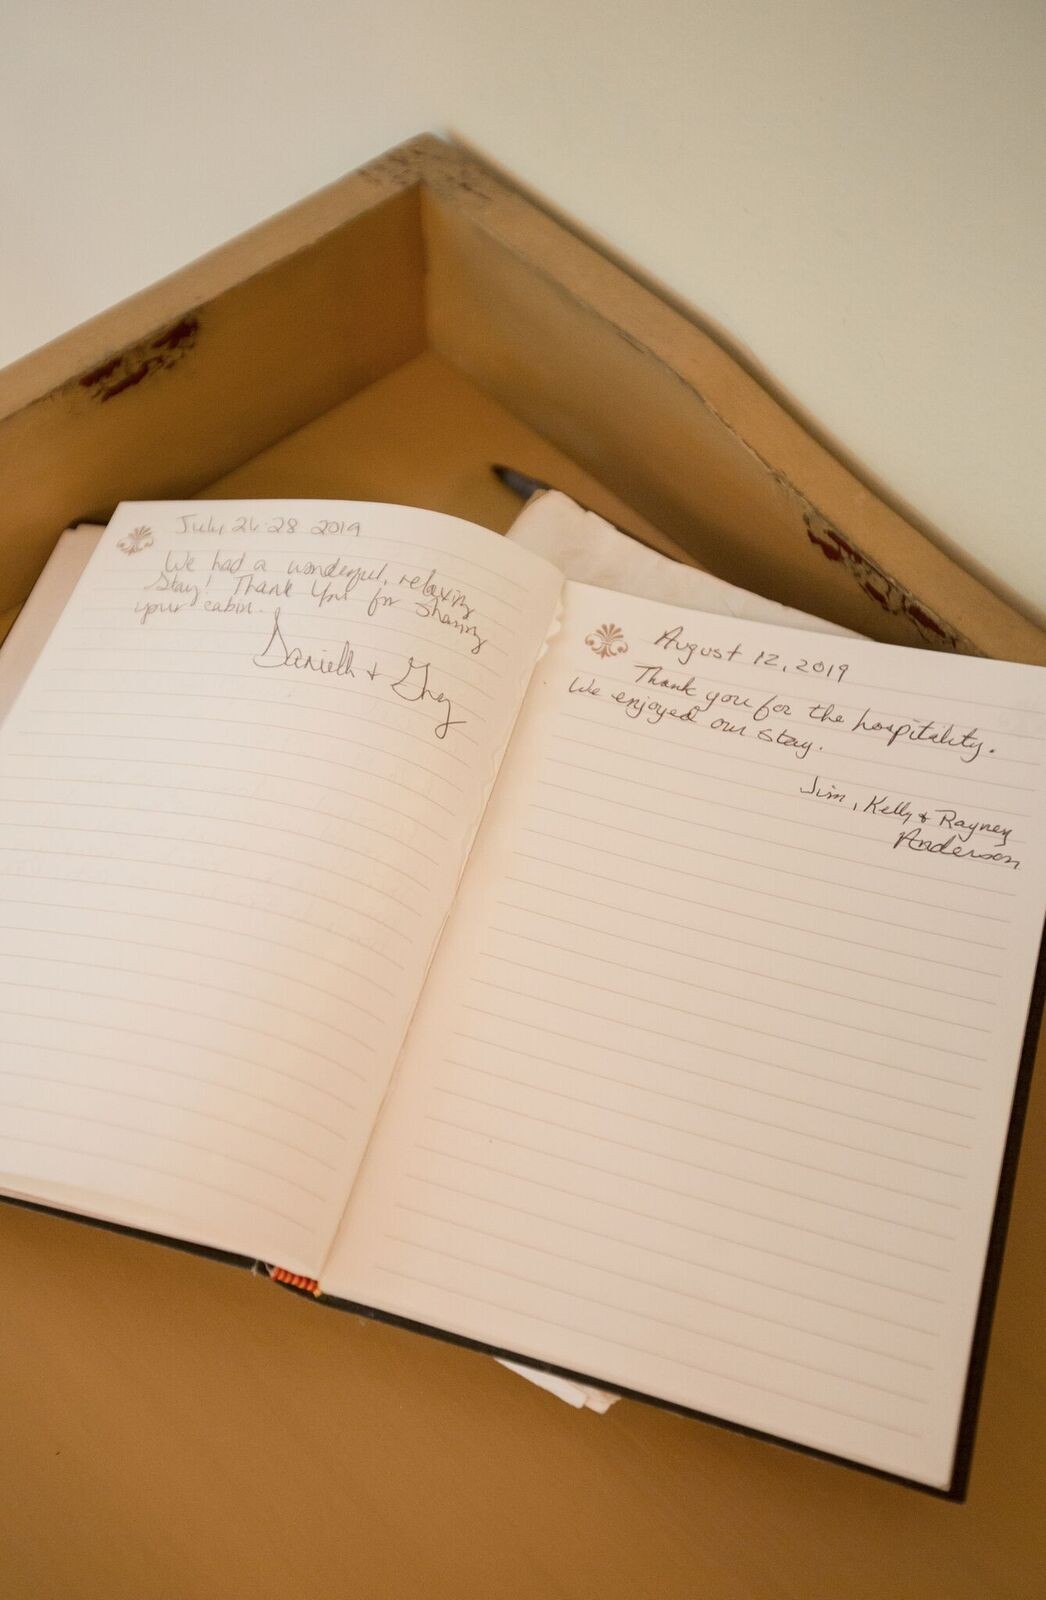 July 26-28 2019
We had a wonderful, relaxing
Stay! Thank You for Sharing
your cabin.
Danielle + Greg
August 12, 2019
Thank you for the hospitality.
We enjoyed our stay.
Jim, Kelly + Rayney
Anderson